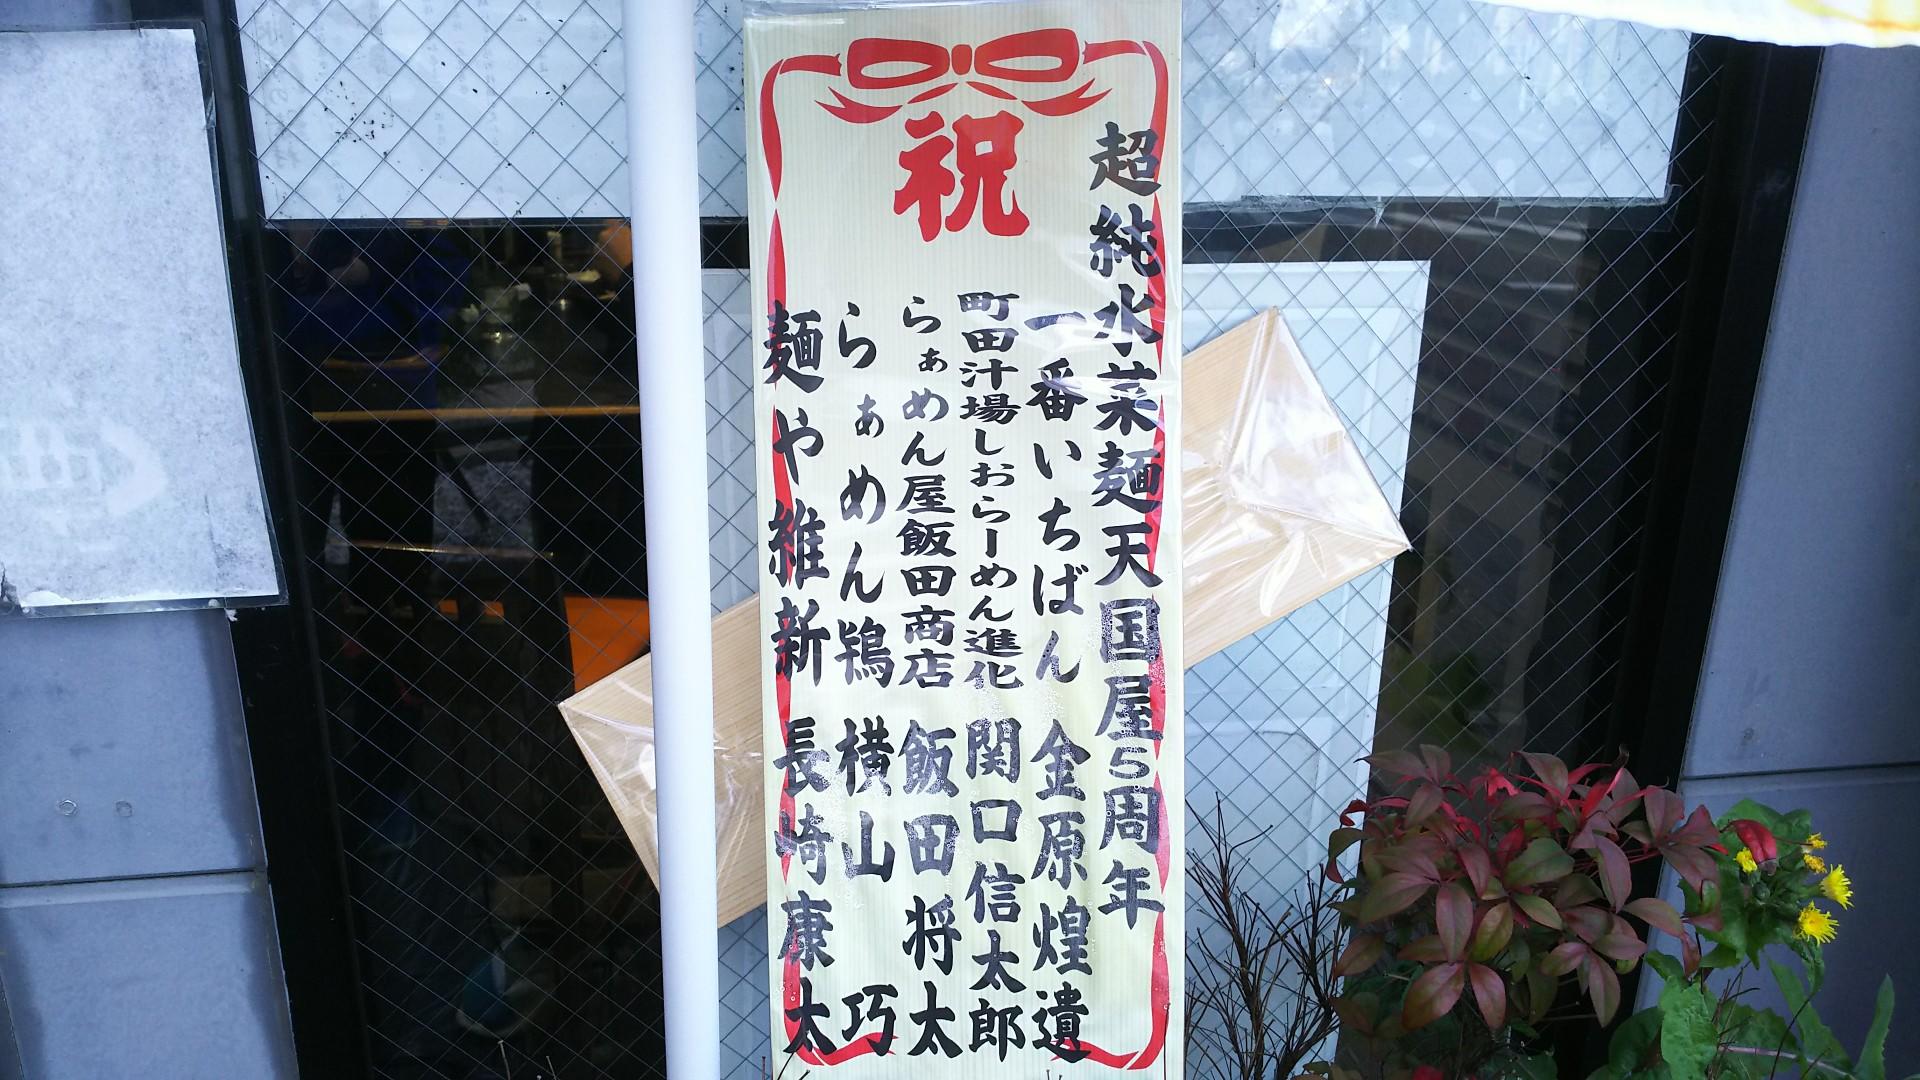 祝
超純水菜麺天国屋5周年
一番いちばん 金原煌遺
町田汁場しおらーめん進化 関口信太郎
らぁめん屋飯田商店 飯田将太
らぁめん鴇 横山巧
麺や維新 長崎康太